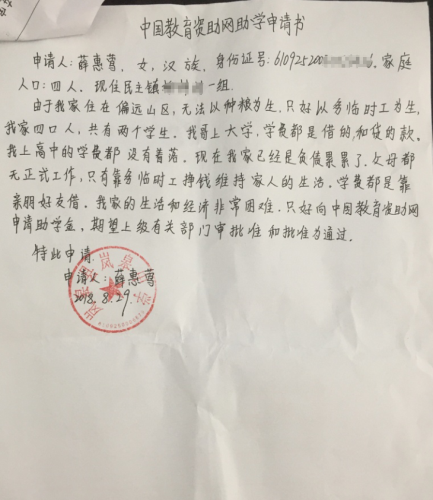 中国教育资助网助学申请书
申请人：薛惠莺，女，汉族，身份证号：610925200 6，家庭
人口：四人，现住民主镇 一组.
由于我家住在偏远山区，无法以种粮为生，只好以务临时工为生，
我家四口人，共有两个学生。我哥上大学，学费都是借的，和贷的款。
我上高中的学费都没有着落。现在我家已经是负债累累了，父母都
无正式工作，只有靠务临时工挣钱维持家人的生活。学费都是靠
亲朋好友借。我家的生活和经济非常困难，只好向中国教育资助网
申请助学金，期望上级有关部门审批准和批准为通过。
特此申请.
申请人：薛惠莺
2018.8.29.
岚皋